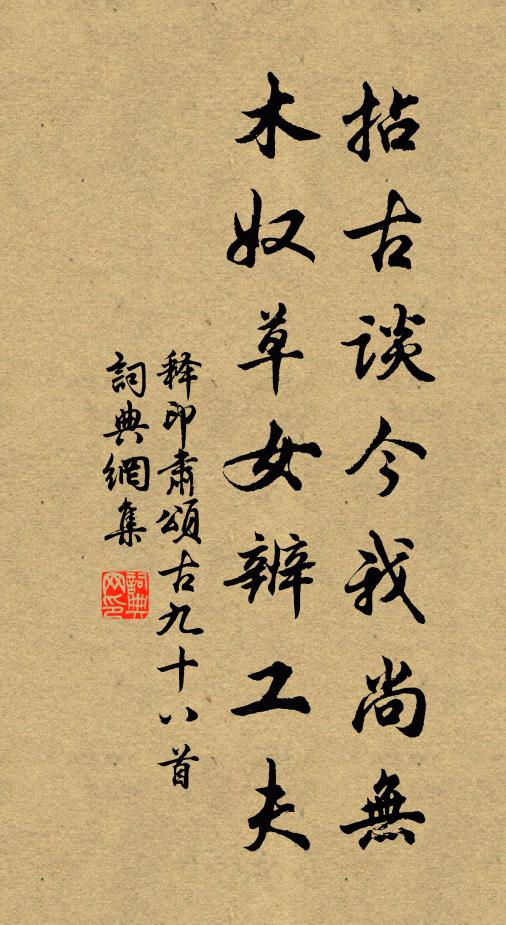 拈古談今我尚無
木奴草女辨工夫
释印肅頌古九十八首
詞典網集
詞典網印